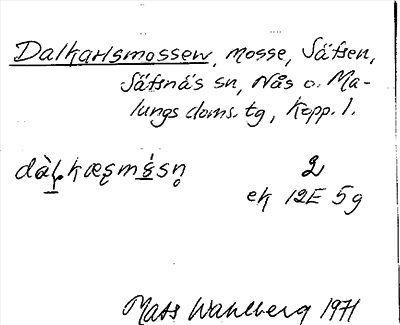 Dalkarlsmossen, mosse, Säfsen,
Säfsnäs sn, Nås o. Ma-
lungs doms. tg, Kopp. l.
2
ek 12E 5g
Mats Wahlberg 1971